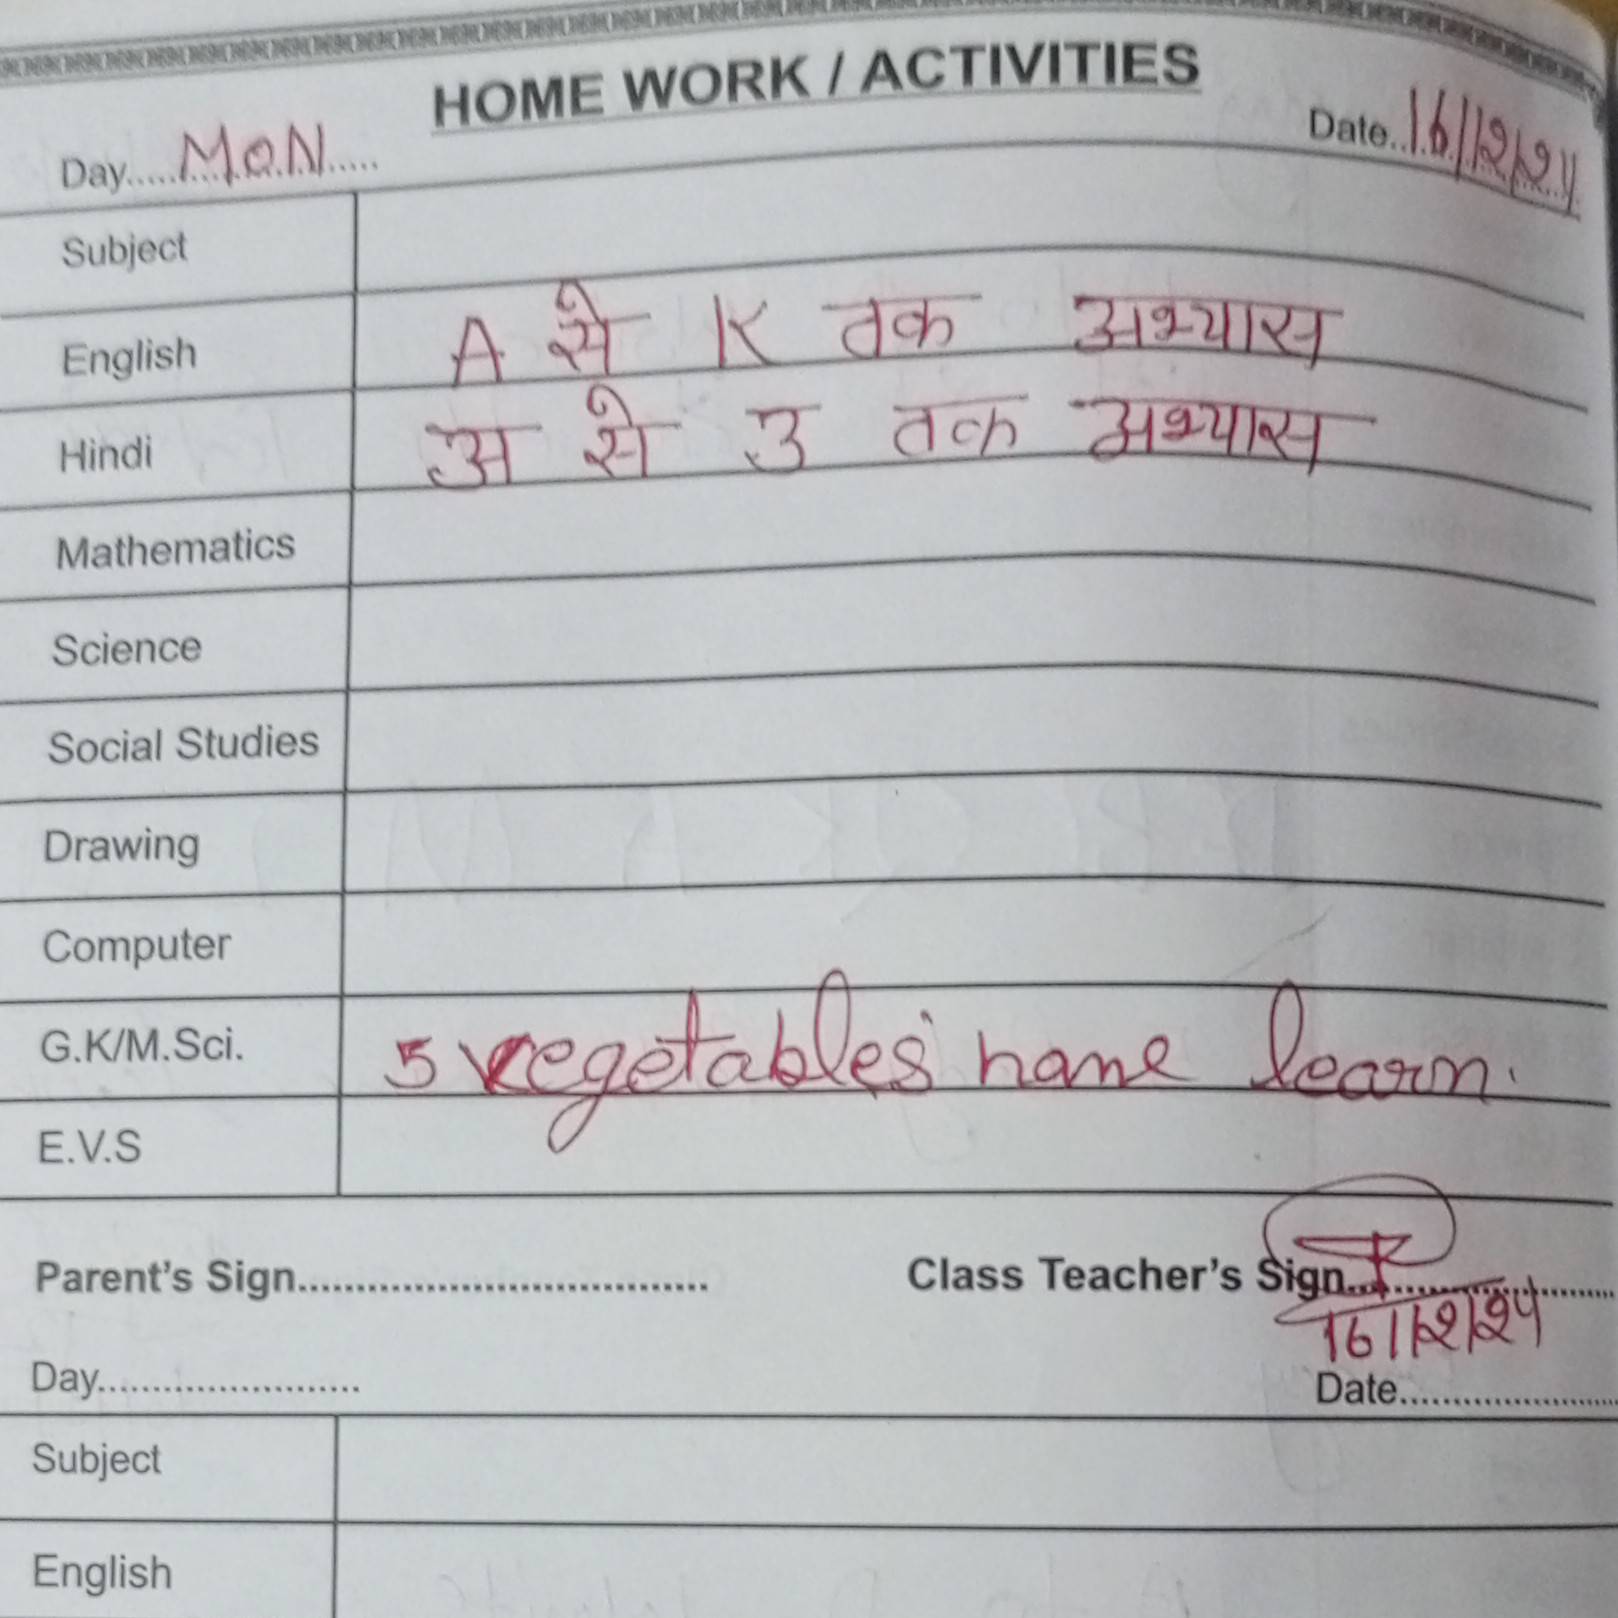 HOME WORK / ACTIVITIES
Day..... MON ..... Date.. 16/12/24
Subject
English A से K तक अभ्यास
Hindi अ से उ तक अभ्यास
Mathematics
Science
Social Studies
Drawing
Computer
G.K/M.Sci. 5 vegetables name learn.
E.V.S
Parent's Sign.................................. Class Teacher's Sign....................
16/12/24
Day........................ Date....................
Subject
English